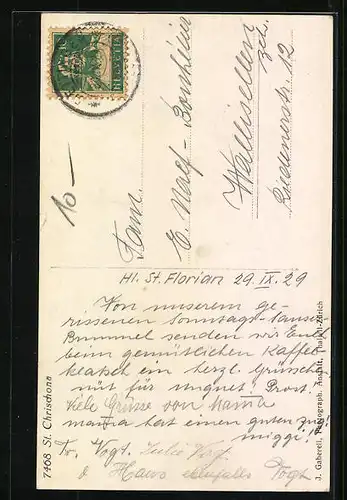 10
HELVETIA
10 —
Fam.
E. Naef-Bonheim
Wallisellen
Zch.
Riedenerstr. 12
Hl. St. Florian 29. IX. 29
Von unserem ge-
rissenen Sonntags
Bummel senden wir Euch
beim gemütlichen Kaffee
klatsch ein herzl.
nüt für ungnet Prost
Viele Grüsse von Mama
mama hat einen guten zu
migge!!
Fr. Vogt.
& Hans ebenfalls Vogt
7468 St. Chrischona
J. Gaberell, Photograph. Anstalt, Thalwil-Zürich